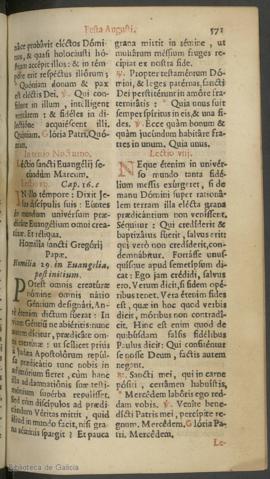 Festa Augusti.
571
nace probávit eléctos Dómi-
nus, & quasi holocausti hó-
stiam accépit illos: & in tém-
póre erit respéctus illórum;
* Quóniam donum & pax
est eléctis Dei. ℣. Qui confí-
dunt in illum, intélligent
veritátem : & fidéles in di-
lectióne acquiéscent illi.
Quóniam. Glória Patri. Quó-
niam.
In tertio Nocturno.
Léctio sancti Euangélij se-
cúndùm Marcum.
Lectio vij. Cap. 16. c
IN illo témpore : Dixit Je-
sus discípulis suis : Eúntes
in mundum univérsum præ-
dicáte Euangélium omni crea-
túræ. Et réliqua.
Homilía sancti Gregórij
Papæ.
Homilia 29. in Euangelia,
post initium.
POtest omnis creatúræ
nómine omnis nátio
Géntium designári. An-
te étenim dictum fuerat : In
viam Géntium ne abiéritis: nunc
autem dícitur, prædicáte om-
ni creatúræ : ut scílicet priùs
à Judæa Apostolórum repúl-
sa prædicátio tunc nobis in
adjutórium fieret, cùm hanc
illa ad damnatiónis suæ testi-
mónium supérba repulísset.
Sed cùm discípulos ad prædi-
cándum Véritas mittit , quid
aliud in mundo facit, nisi gra-
na séminis spargit ? Et pauca
grana mittit in sémine , ut
multárum méssium fruges re-
cípiat ex nostra fide.
℟. Propter testaméntum Dó-
mini, & leges patérnas, sancti
Dei perstitérunt in amóre fra-
ternitátis : * Quia unus fuit
semper spíritus in eis, & una fi-
des. ℣. Ecce quàm bonum &
quàm jucúndum habitáre fra-
tres in unum. Quia.
Lectio viij.
NEque étenim in univér-
so mundo tanta fidé-
lium messis exsúrgeret , si de
manu Dómini super rationá-
lem terram illa elécta grana
prædicántium non veníssent.
Séquitur : Qui credíderit &
baptizátus fúerit , salvus erit:
qui verò non credíderit, con-
demnábitur. Fortásse unus-
quísque apud semetípsum di-
cat : Ego jam crédidi, salvus
ero. Verum dicit, si fidem opé-
ribus tenet. Vera étenim fides
est , quæ in hoc quod verbis
dicit, móribus non contradí-
cit. Hinc est enim quod de
quibúsdam falsis fidélibus
Paulus dicit: Qui confiténtur
se nosse Deum , factis autem
negant.
℟. Sancti mei, qui in carne
pósiti , certámen habuístis,
* Mercédem labóris ego red-
dam vobis. ℣. Veníte bene-
dícti Patris mei , percípite re-
gnum. Mercédem. Glória Pa-
tri. Mercédem.
Le-
Biblioteca de Galicia